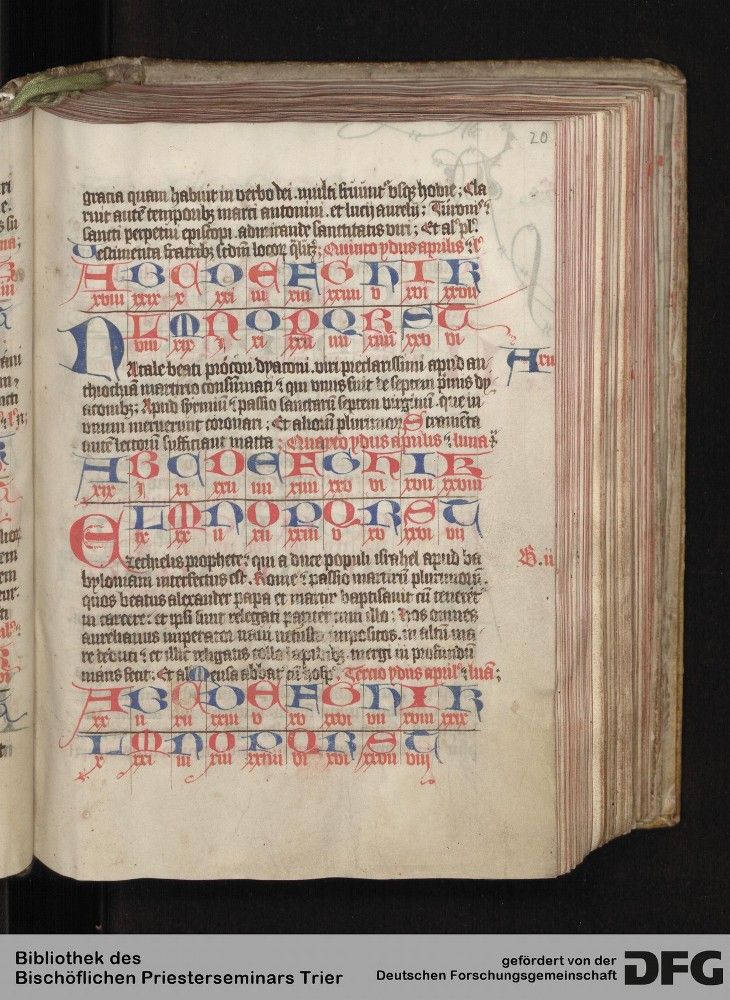 20
gracia quam habuit in verbo dei. multi
Cla
ruit autē temporibꝫ marci antonini. et lucij aurelij;
sancti perpetui episcopi. admirande sanctitatis viri; Et al' pl'.
Vestimenta fratribꝫ scdm locor
Quinto ydus aprilis
A B C D E F G H I K
xviii xxix x xxi iii xiii xxiiii v xvi xxvii
L M N O P Q R S T
viii xix j xi xxii iiii xiiii xxv vi
Natale beati
dyaconi. viri preclarissimi apud an
Aru
thiochiā martirio consūmati
qui vnus fuit de septem p̄mis dy
aconibꝫ; Apud syrmiū
passio sanctarū septem virginū. que in
vnum meruerunt coronari; Et aliorū plurimorū
Stramēta
autē lectorū sufficiant matta; Quarto ydus aprilis
luna
A B C D E F G H I K
xix j xi xxii iiii xiiii xxv vi xvii xxviii
L M N O P Q R S T
ix xx ii xii xxiii v xv xxvi vii
Ezechielis prophete; qui a duce populi israhel apud ba
B. ii
byloniam interfectus est. Rome
passio martirū plurimorū.
quos beatus alexander papa et martir baptisauit cū teneret
in carcere; et ipsi sunt relegati pariter cum illo; Hos omnes
aurelianus imperator naui
impositos. in altū ma
re deduci
et illic religatis collo lapidibꝫ. mergi in profundū
maris fecit; Et al' Mensa abbat' cū
Tercio ydus april'
luā;
A B C D E F G H I K
xx ii xii xxiii v xv xxvi vii xviii xxix
L M N O P Q R S T
x xxi iii xiii xxiiii vi xvi xxvii viii
Bibliothek des
Bischöflichen Priesterseminars Trier
gefördert von der
Deutschen Forschungsgemeinschaft
DFG